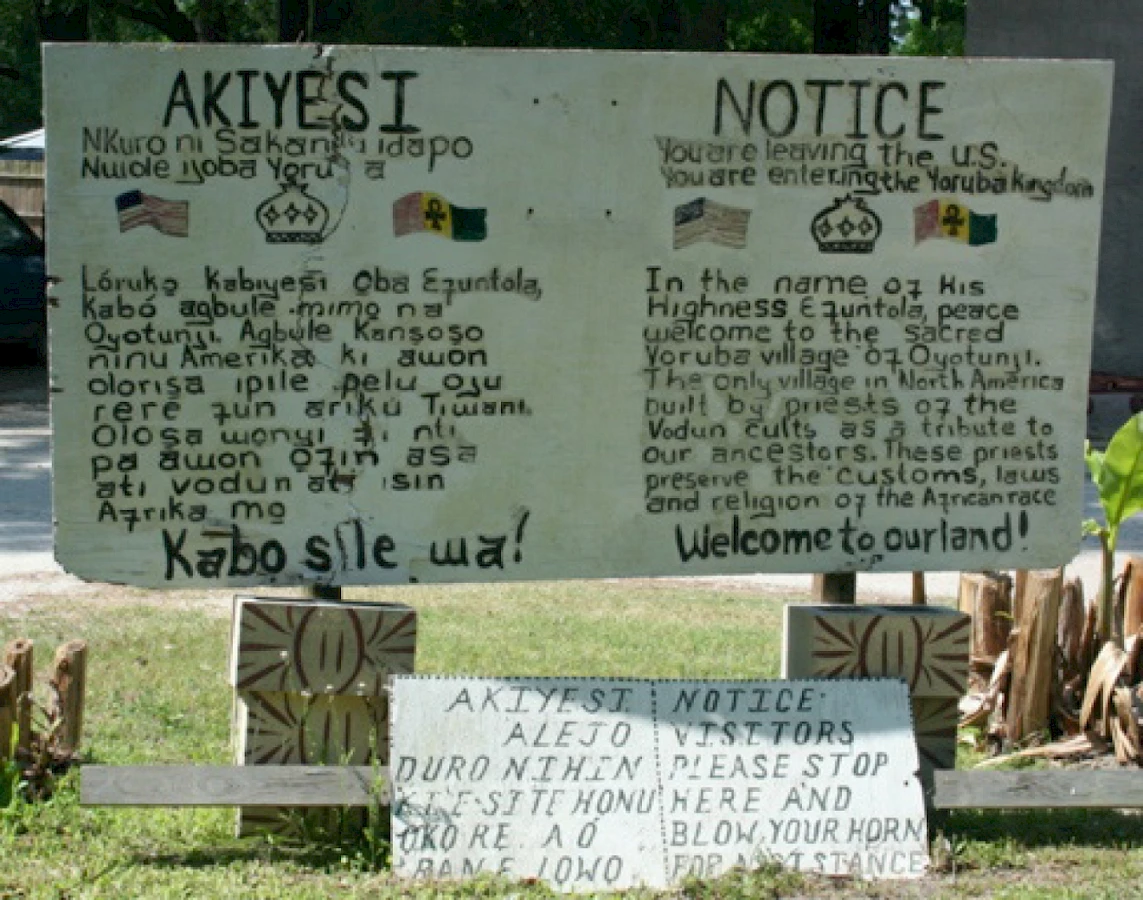 AKIYESI
NKuro ni Sakan idapo
Nwole iyoba Yoru a
Lóruko Kabiyesi Oba Efuntola,
Kabó agbule mimo na
Oyotunji. Agbule Kansoso
ninu Amerika ki awon
olorisa ipile pelu oju
rere fun ariku Tiwani.
Olosa wonyi fi nti
pa awon ofin asa
ati vodun ati isin
Afrika mo
Kabo sile wa!
NOTICE
You are leaving the U.S.
You are entering the Yoruba Kingdom
In the name of His
Highness Efuntola, peace
welcome to the Sacred
Yoruba village of Oyotunji.
The only village in North America
built by priests of the
Vodun cults as a tribute to
Our ancestors. These priests
preserve the Customs, laws
and religion of the African race
Welcome to our land!
AKIYESI
ALEJO
DURO NIHIN
SITE HONU
OKO RE. A O
RAN E LOWO
NOTICE:
VISITORS
PLEASE STOP
HERE AND
BLOW YOUR HORN
FOR ASSISTANCE